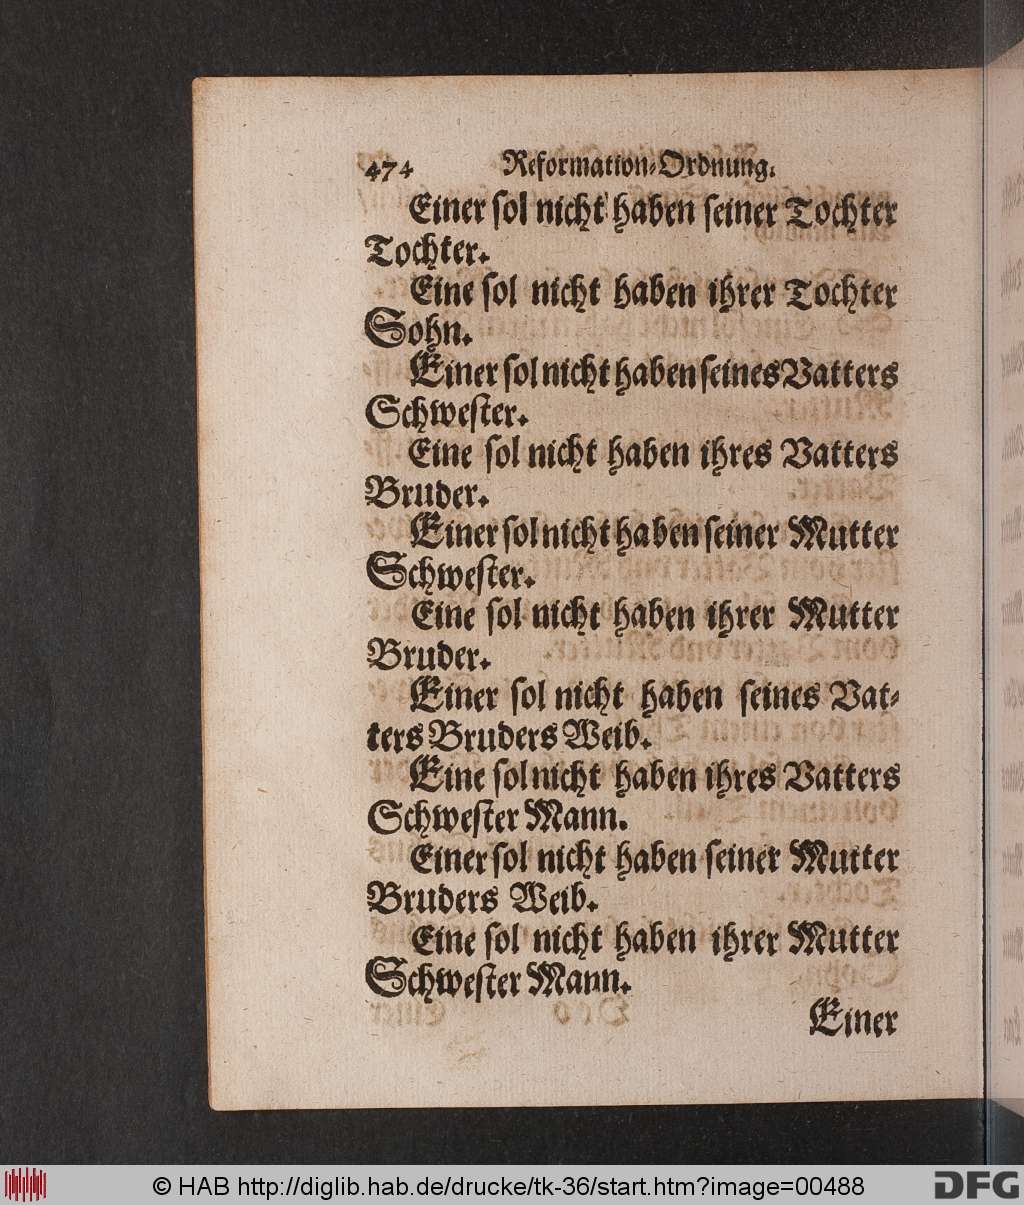 474 Reformation-Ordnung.
Einer sol nicht haben seiner Tochter
Tochter.
Eine sol nicht haben ihrer Tochter
Sohn.
Einer sol nicht haben seines Vatters
Schwester.
Eine sol nicht haben ihres Vatters
Bruder.
Einer sol nicht haben seiner Mutter
Schwester.
Eine sol nicht haben ihrer Mutter
Bruder.
Einer sol nicht haben seines Vat-
ters Bruders Weib.
Eine sol nicht haben ihres Vatters
Schwester Mann.
Einer sol nicht haben seiner Mutter
Bruders Weib.
Eine sol nicht haben ihrer Mutter
Schwester Mann.
Einer
© HAB http://diglib.hab.de/drucke/tk-36/start.htm?image=00488
DFG